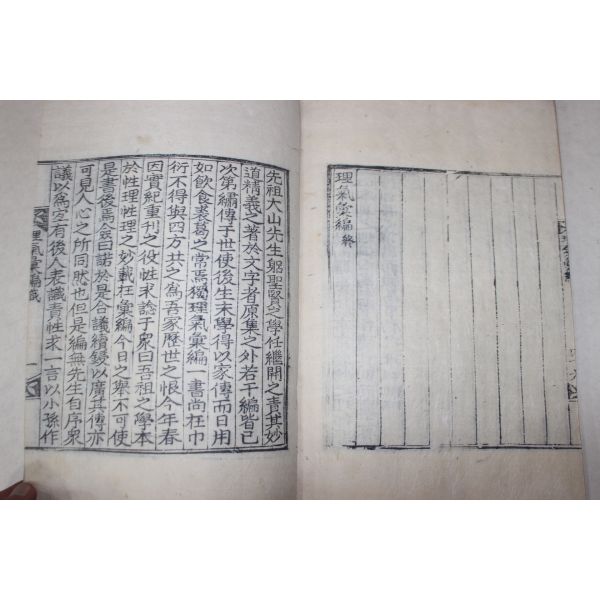 理氣彙編終
先祖大山先生躬聖賢之學任繼開之責其妙
道精義之著於文字者原集之外若干編皆已
次第繡傳于世使後生末學得以家傳而日用
如飲食裘葛之常焉獨理氣彙編一書尙在巾
衍不得與四方共之爲吾家歷世之恨今年春
因實紀重刊之役性求諗于衆曰吾祖之學本
於性理性理之妙載在彙編今日之舉不可使
是書後焉僉曰諾於是合議續鋟以廣其傳亦
可見人心之所同然也但是編無先生自序衆
議以爲宜有後人表識責性求一言以小孫作
理氣彙編識
一